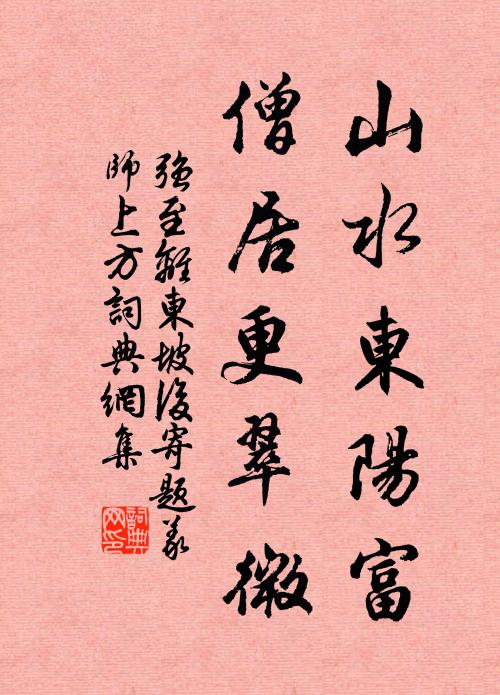 山水東陽富
僧居更翠微
強至離東坡後寄題義
師上方詞典網集
詞典
网印